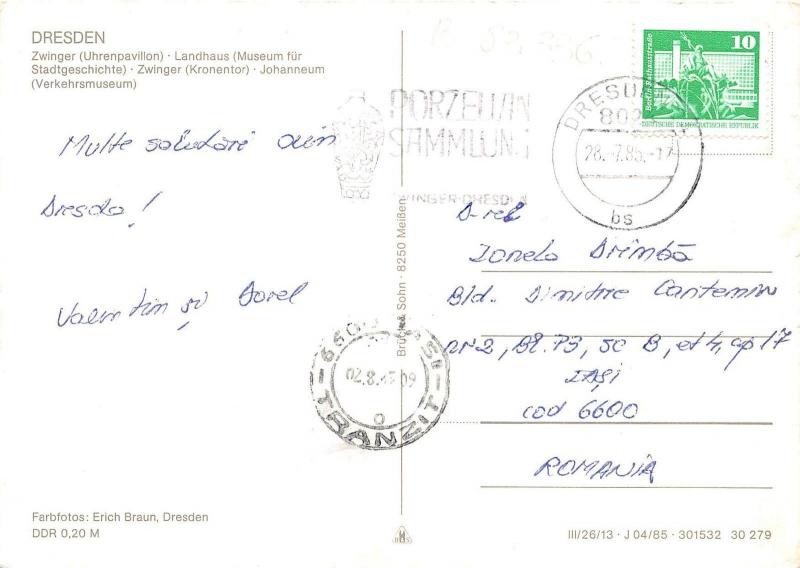 DRESDEN
Zwinger (Uhrenpavillon) · Landhaus (Museum für
Stadtgeschichte) · Zwinger (Kronentor) · Johanneum
(Verkehrsmuseum)
Multe salutări din
Dresda!
Valentin și Dorel
PORZELLAN
SAMMLUNG
ZWINGER-DRESDEN
DRESDEN
802
28.-7.85.-17
bs
10
Berlin, Rathausstraße
DEUTSCHE DEMOKRATISCHE REPUBLIK
D-rei
Ionela Drimbă
Bld. Dimitrie Cantemir
nr 2, Bl. P3, sc B, et 4, ap 17
IAȘI
cod 6600
ROMANIA
Brück & Sohn · 8250 Meißen
6600 IASI
02.8.85 09
TRANZIT
Farbfotos: Erich Braun, Dresden
DDR 0,20 M
III/26/13 · J 04/85 · 301532 30 279